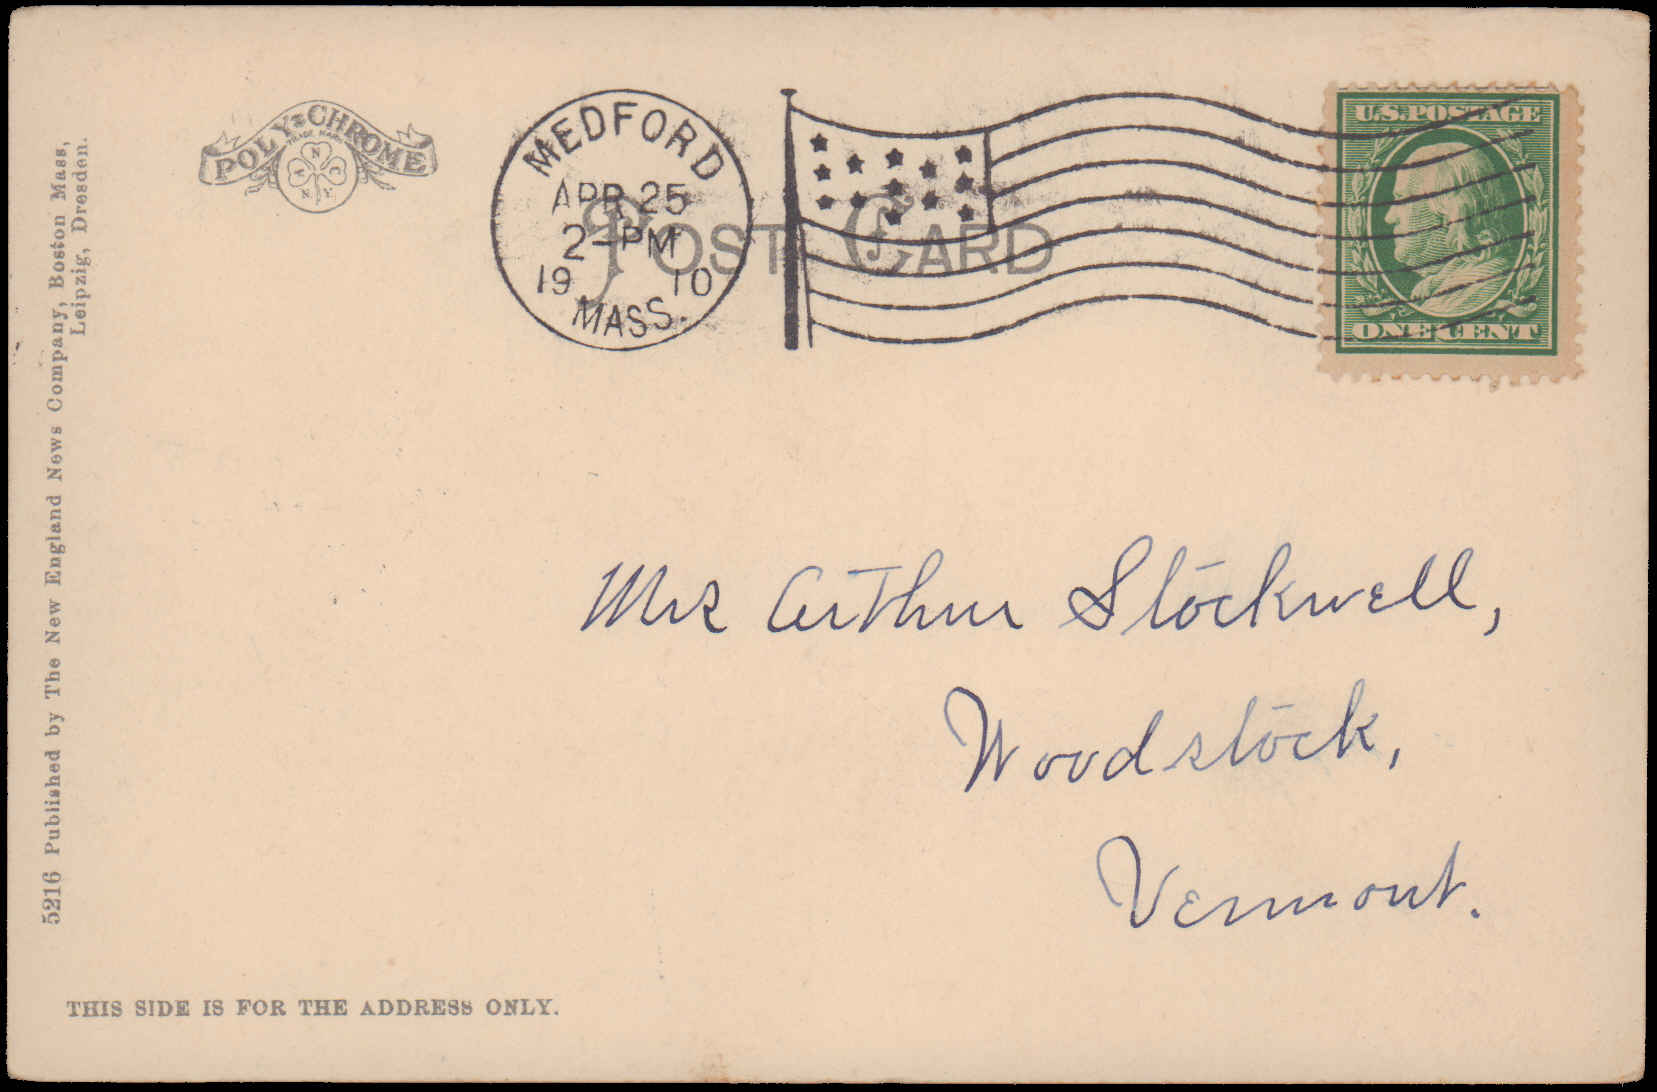 POLY-CHROME
TRADE MARK
A N C Y N
MEDFORD
APR 25
2-PM
19 10
MASS.
POST CARD
U.S. POSTAGE
ONE CENT
Mrs Arthur Stockwell,
Woodstock,
Vermont.
5216 Published by The New England News Company, Boston Mass,
Leipzig, Dresden.
THIS SIDE IS FOR THE ADDRESS ONLY.